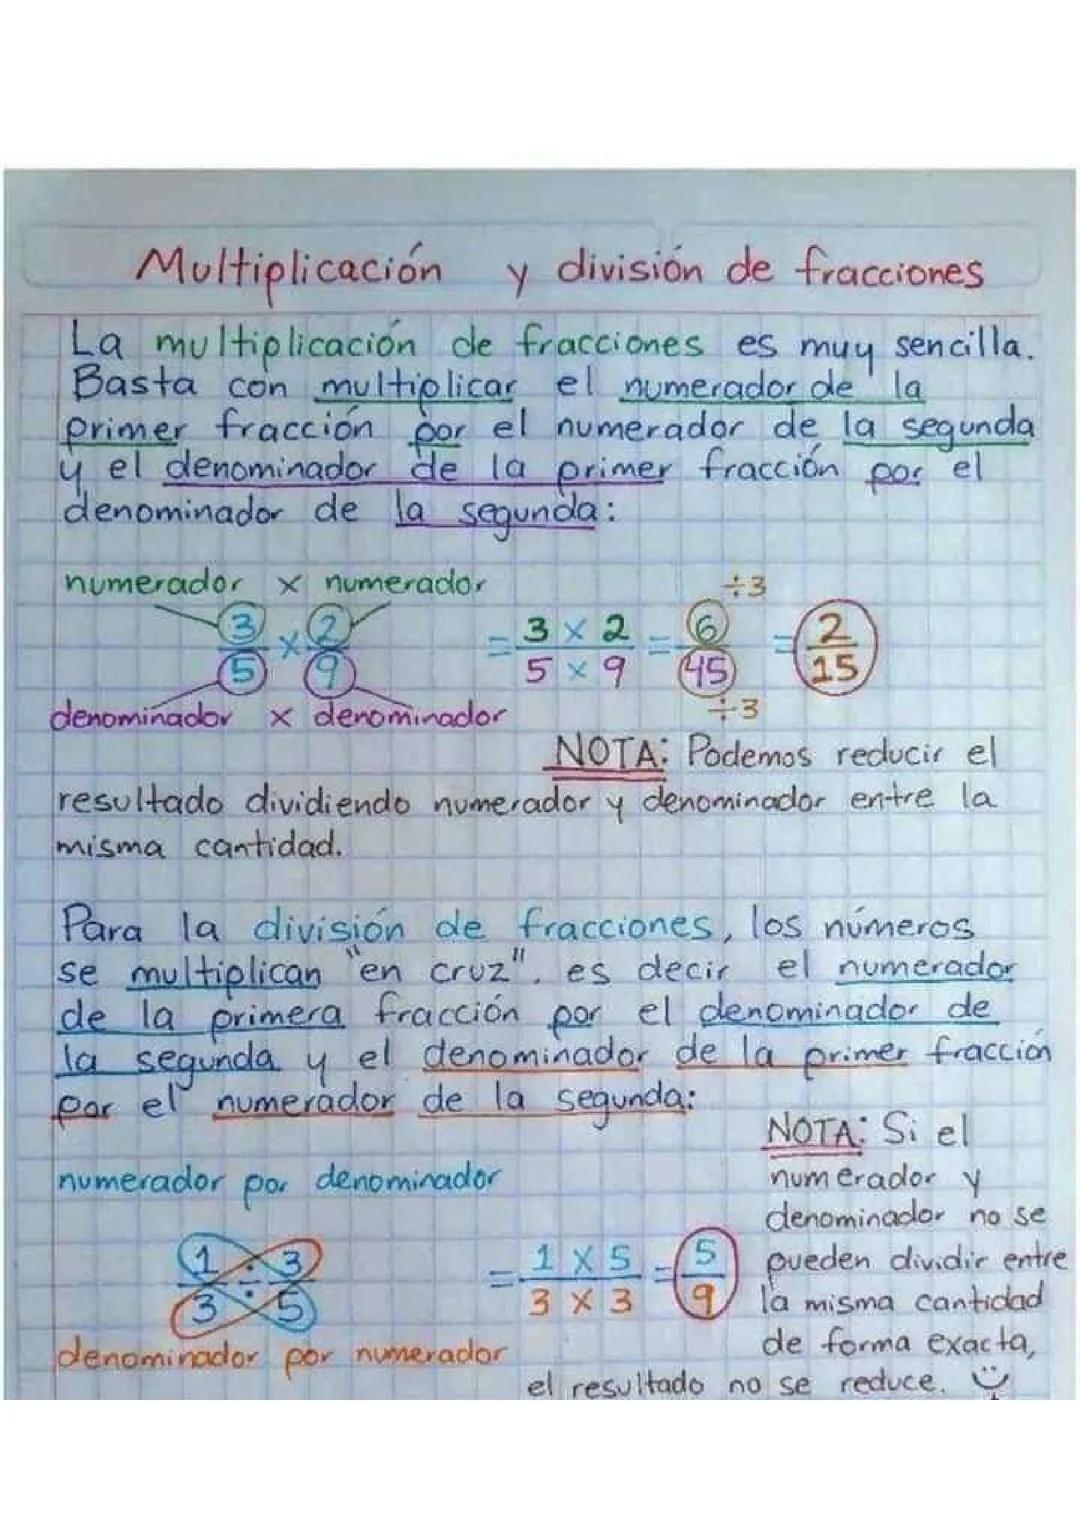 Multiplicación y división de fracciones
La multiplicación de fracciones es muy sencilla.
Basta con multiplicar el numerador de la
primer fracción por el numerador de la segunda
y el denominador de la primer fracción por el
denominador de la segunda:
numerador x numerador
÷3
3/5 x 2/9 = 3 x 2 / 5 x 9 = 6/45 = 2/15
÷3
denominador x denominador
NOTA: Podemos reducir el
resultado dividiendo numerador y denominador entre la
misma cantidad.
Para la división de fracciones, los números
se multiplican "en cruz". es decir el numerador
de la primera fracción por el denominador de
la segunda y el denominador de la primer fracción
por el numerador de la segunda:
numerador por denominador
1/3 ÷ 3/5 = 1 x 5 / 3 x 3 = 5/9
denominador por numerador
NOTA: Si el
numerador y
denominador no se
pueden dividir entre
la misma cantidad
de forma exacta,
el resultado no se reduce.